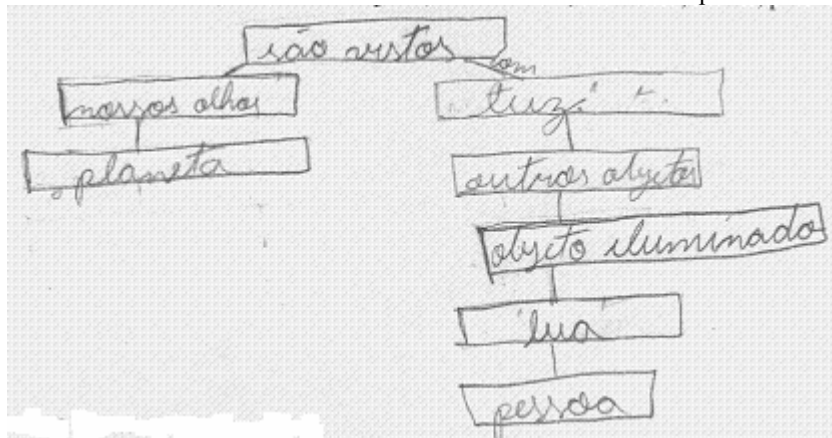 são vistos
com
nossos olhos
luz
planeta
outros objetos
objeto iluminado
lua
pessoa